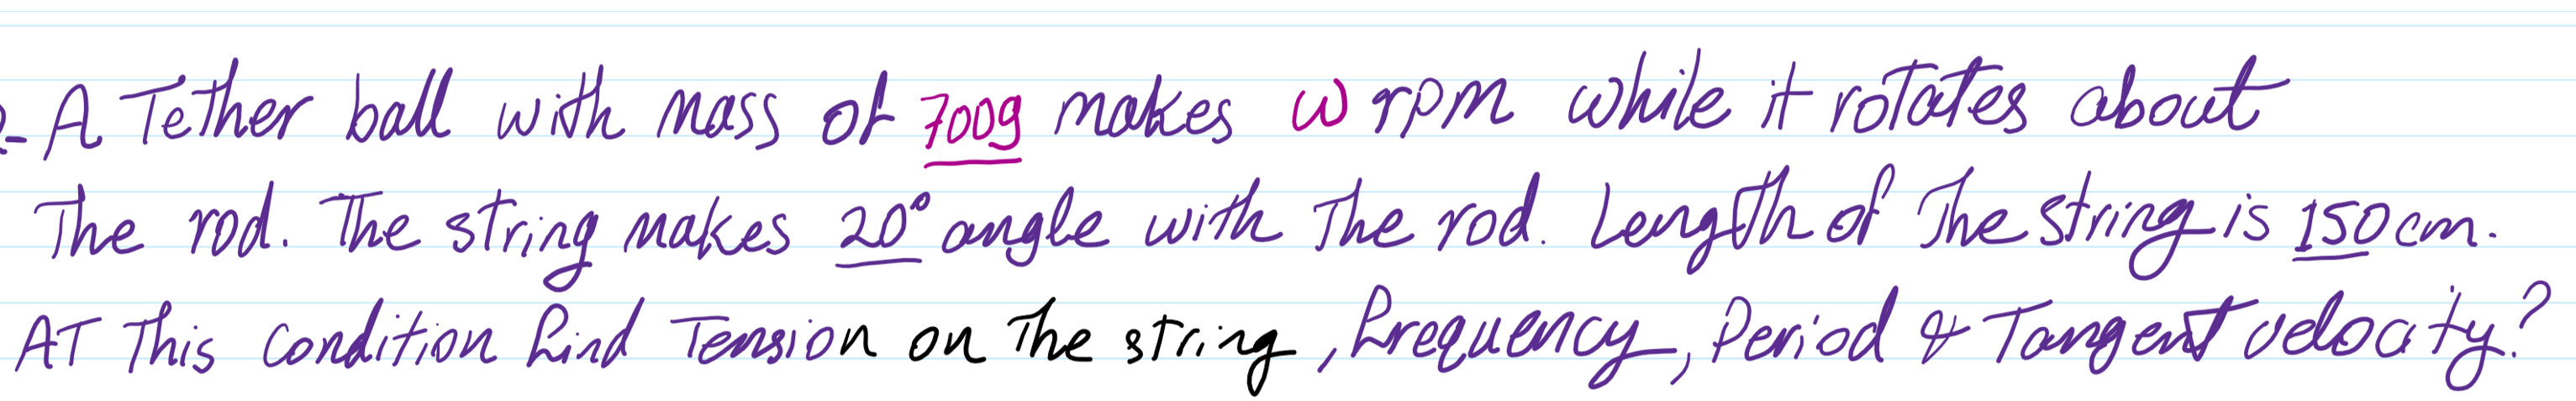 - A Tether ball with mass of 700g makes ω rpm while it rotates about
The rod. The string makes 20° angle with The rod. Length of The string is 150 cm.
AT This condition find Tension on The string, frequency, Period & Tangent velocity?